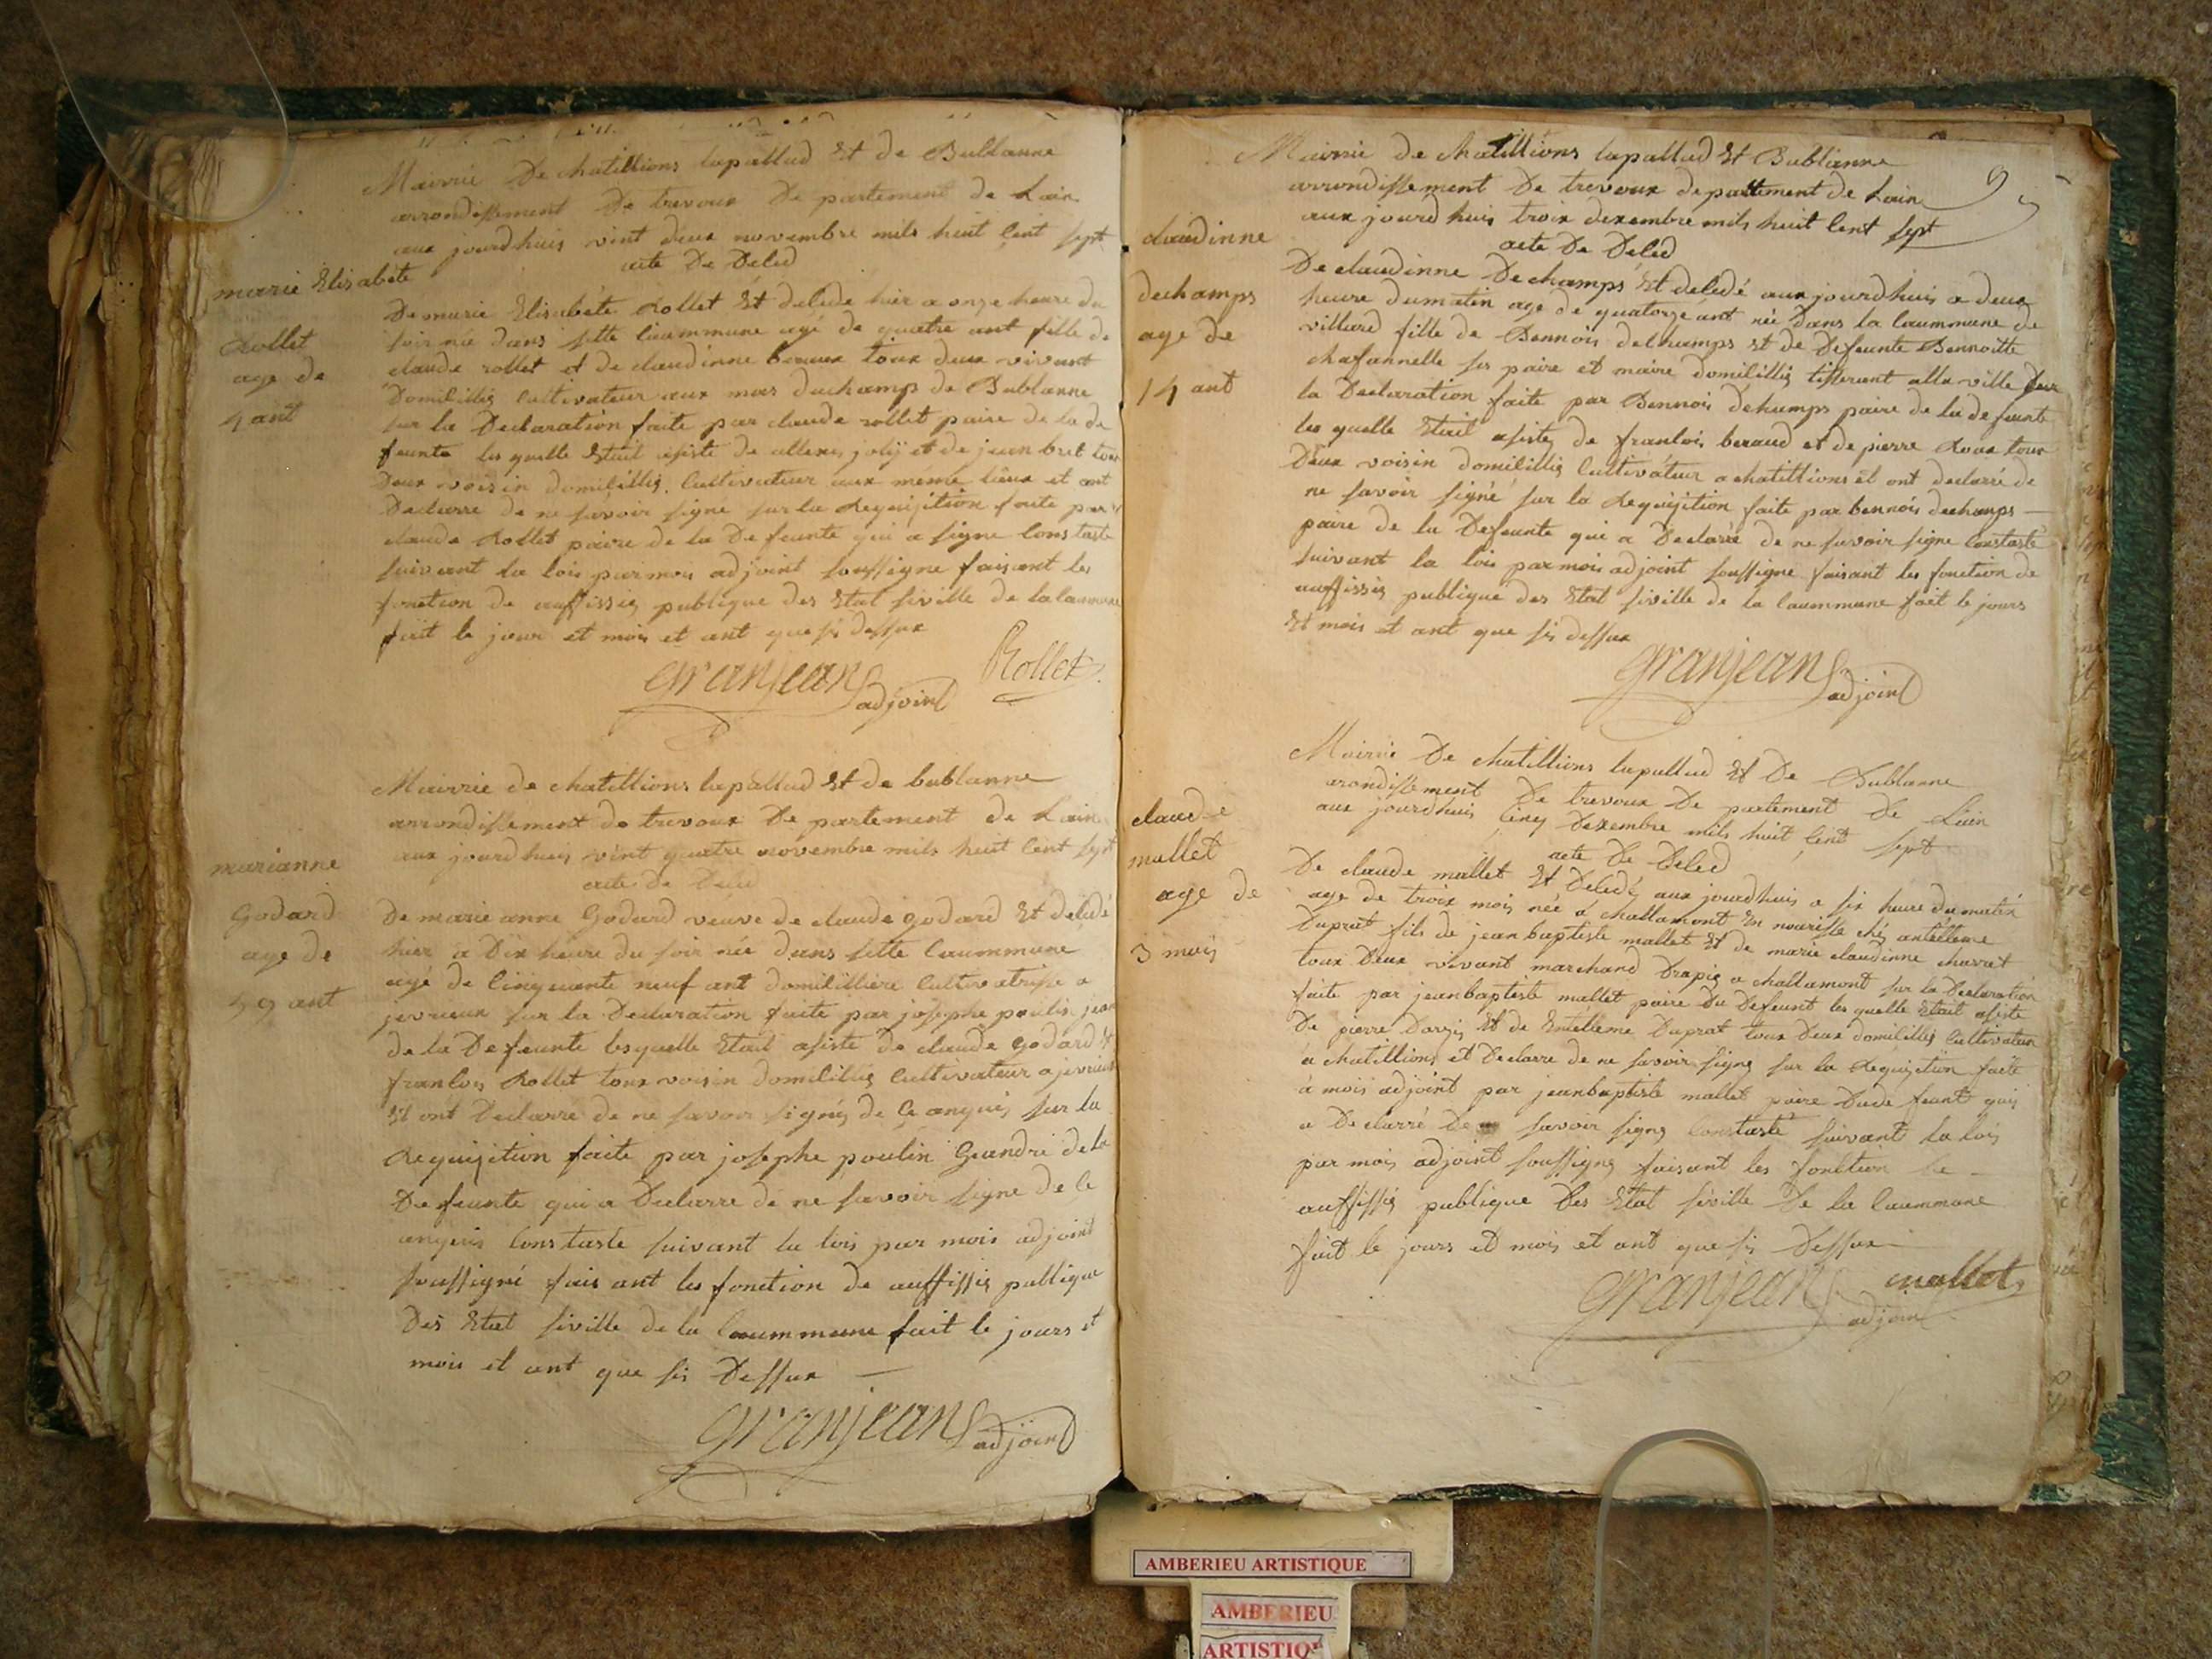 Mairrie De chatillions lapallud Et de Bublanne
arrondissement De trevoux De partement de Lain
aux jourdhuis vint deux novembre mils huit Cent sept
acte De Deled
marie Elisabete
Rollet
age de
4 ant
De marie Elisabete Rollet Et deledé hier a onze heure du
soir née dans sette Caummune agé de quatre ant fille de
claude rollet et de claudinne beraux toux deux vivant
Domicilliés Cultivateur aux mas duchamps de Bublanne
sur la Declaration faite par claude rollet paire de la de
feunte les quelle Etait asisté de allexis joly et de jean bret toux
Deux voisin domicilliés Cultivateur aux méme lieux et ont
Declarre de ne savoir signe sur la Requijition faite par
claude Rollet paire de la De feunte qui a signe Constasté
suivant la lois par mois adjoint soussigne faisant les
fonction de auffissié publique des Etat siville de la Caummune
fait le jour et mois et ant que si dessux
granjean adjoint
Rollet
Mairrie de chatillions lapallud Et de bublanne
arrondissement de trevoux De partement de Lain
aux jourdhuis vint quatre novembre mils huit Cent sept
acte De Deled
marianne
Godard
age de
59 ant
De marie anne Godard veuve de claude godard Et deledé
hier a Dix heure du soir née dans sette Caummune
agé de Cinquante neuf ant domicilliere Cultivatrisse a
jevrieux sur la Declaration faite par josephe poulin
de la Defeunte lesquelle Etait asisté de claude godard Et
franCois Rollet toux voisin domicilliés Cultivateur a jevrieux
Et ont Declarre de ne savoir signés de Ce anquis sur la
Requijition faite par josephe poulin Geandre de la
De feunte qui a Declarre de ne savoir signe de Ce
anquis Constaste suivant la lois par mois adjoint
soussigné fais ant les fonction de auffissié publique
Des Etat siville de la Caummune fait le jours et
mois et ant que si Dessux
granjean adjoint
Mairrie de chatillions lapallud Et Bublanne
arrondissement De trevoux departtement de Lain
aux jourdhuis troix dexembre mils huit Cent sept
acte De Deled
claudinne
dechamps
age de
14 ant
De claudinne Dechamps Et deledé aux jourdhuis a deux
heure dumatin age de quatorze ant née Dans la Caummune de
villard fille de Bennois dechamps et de Defeunte Bennoitte
chafannelle ses paire et maire domicilliés tisserant alla ville sur
la Declaration faite par Bennois dechamps paire de la defeunte
les quelle Etait asistes de franCois beraud et de pierre Roux toux
Deux voisin domicilliés Cultivateur a chatillions et ont declarré de
ne savoir signé sur la Requijition faite par bennois dechamps
paire de la Defeunte qui a Declarée de ne savoir signe Constasté
suivant la lois parmois adjoint soussigne faisant les fonction de
auffissié publique des Etat siville de la Caummune fait le jours
Et mois et ant que si dessux
granjean adjoint
Mairrie De chatillions lapallud Et De Bublanne
arondissement De trevoux De partement De Lain
aux jourdhuis Cinq Dexembre mils huit Cent sept
acte De Deled
claude
mallet
age de
3 mois
De claude mallet Et Deledé aux jourdhuis a six heure du matin
age de troix mois née a challamont En nourisse chés antellme
Duprat fils de jean baptiste mallet Et de marie claudinne chavrat
toux Deux vivant marchand Drapié a challamont sur la Declaration
faite par jeanbaptiste mallet paire Du Defeunt les quelle Etait asiste
De pierre Et de Entellme Duprat toux Deux domicilliés Cultivateur
a chatillions et Declarre de ne savoir signe sur la Requijition faite
a mois adjoint par jeanbaptiste mallet paire Dude feunt qui
a Declarré De savoir signe Constasté suivant la lois
par mois adjoint soussigne faisant les fonCtion De
auffissié publique Des Etat siville De la Caummune
fait le jours et mois et ant que si Dessux
granjean adjoint
mallet
AMBERIEU ARTISTIQUE
AMBERIEU
ARTISTIQU